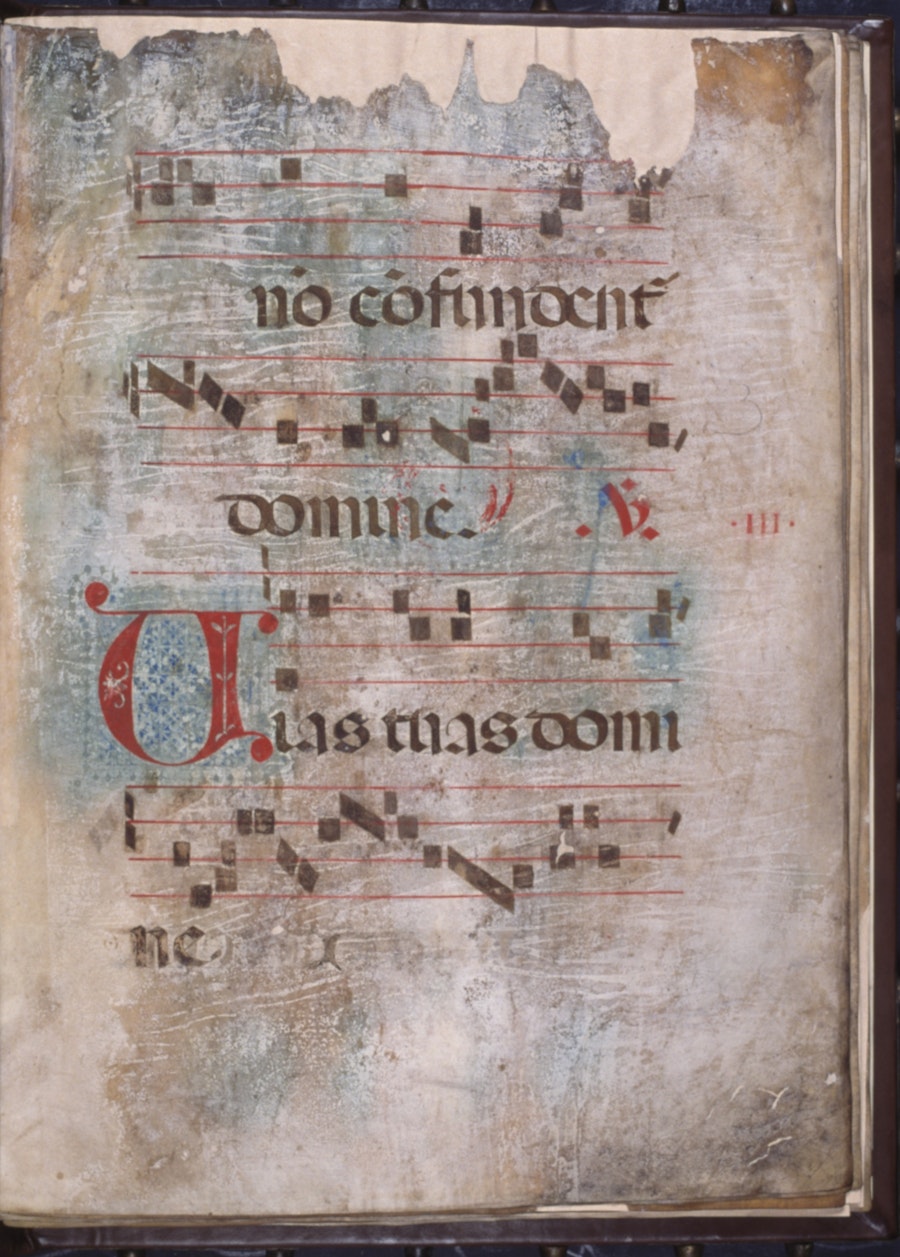 nō cōfundent̄
domine. .℣. ·III·
Vias tuas domi
ne